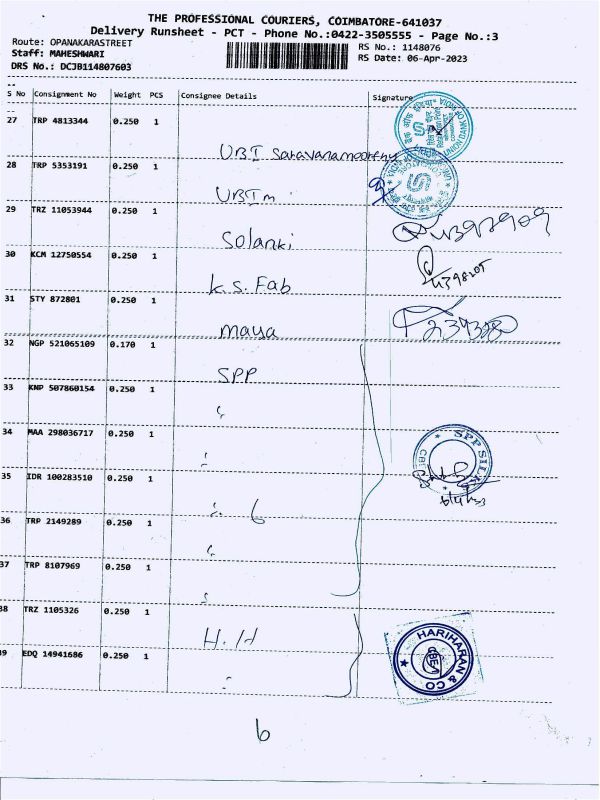 THE PROFESSIONAL COURIERS, COIMBATORE-641037
Delivery Runsheet - PCT - Phone No.:0422-3505555 - Page No.:3
Route: OPANAKARASTREET
RS No.: 1148076
Staff: MAHESHWARI
RS Date: 06-Apr-2023
DRS No.: DCJB114807603
S No Consignment No Weight PCS Consignee Details Signature
27 TRP 4813344 0.250 1
UBI Saravanamoorthy
28 TRP 5353191 0.250 1
UBI m
29 TRZ 11053944 0.250 1
Solanki
30 KCM 12750554 0.250 1
K.S. Fab
31 STY 872801 0.250 1
maya
32 NGP 521065109 0.170 1
SPP
33 KNP 507860154 0.250 1
34 MAA 298036717 0.250 1
SPP SILKS
35 IDR 100283510 0.250 1
6
36 TRP 2149289 0.250 1
37 TRP 8107969 0.250 1
38 TRZ 1105326 0.250 1
H.H
39 EDQ 14941686 0.250 1
HARIHARAN & CO
CBE-1
6